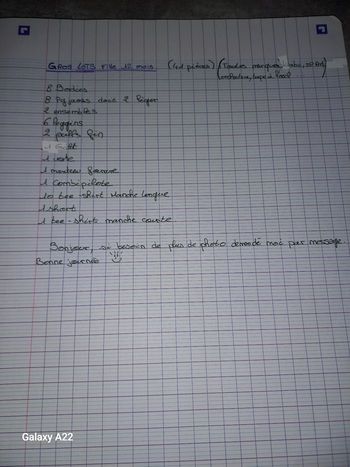 GROS LOTS Fille 12 mois (41 pièces) (Toutes marques,
orchestra, tape à l'oeil)
8 Bodies
8 Pyjamas dont 2 léger
2 ensembles
6 leggins
2 pulls fin
1
1 veste
1 manteau fourrure
1 combi pilote
10 tee-shirt Manche longue
1 short
1 tee-shirt manche courte
Bonjour, si besoin de plus de photo demandé moi par message.
Bonne journée
Galaxy A22